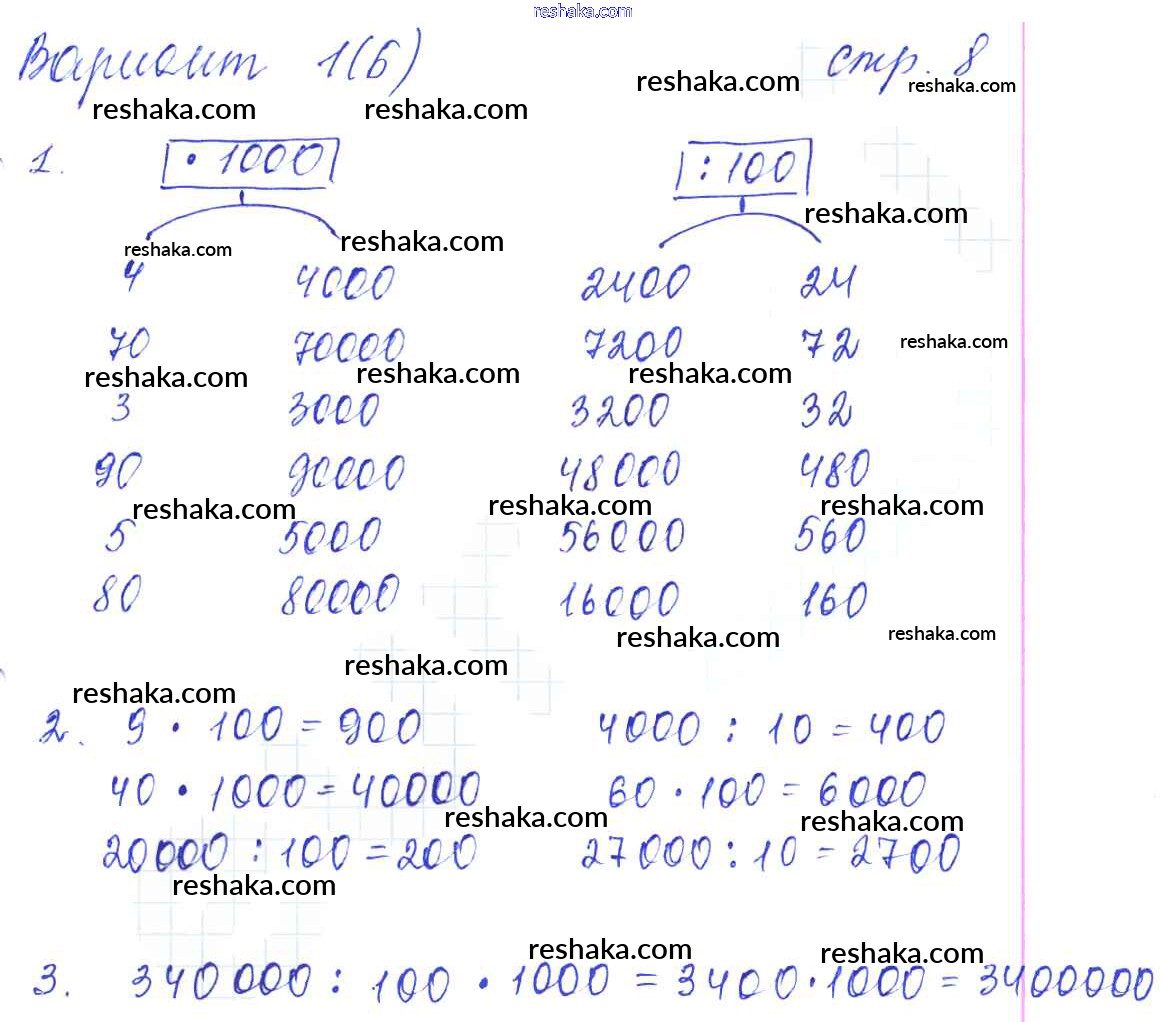 reshaka.com
Вариант 1(б) стр. 8
reshaka.com reshaka.com reshaka.com reshaka.com
1. · 1000 : 100
reshaka.com
reshaka.com reshaka.com
4 4000 2400 24
70 70000 7200 72 reshaka.com
reshaka.com reshaka.com reshaka.com
3 3000 3200 32
90 90000 48000 480
reshaka.com reshaka.com reshaka.com
5 5000 56000 560
80 80000 16000 160
reshaka.com reshaka.com
reshaka.com
reshaka.com
2. 9 · 100 = 900 4000 : 10 = 400
40 · 1000 = 40000 60 · 100 = 6000
reshaka.com reshaka.com
20000 : 100 = 200 27000 : 10 = 2700
reshaka.com
reshaka.com reshaka.com
3. 340000 : 100 · 1000 = 3400 · 1000 = 3400000